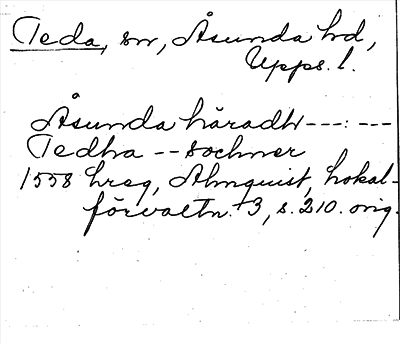 Teda, sn, Åsunda hd,
Upps. l.
Åsunda häradh ---:---
Tedha -- sochner
1558 hreg, Almquist, Lokal-
förvaltn. +3, s. 210. orig.